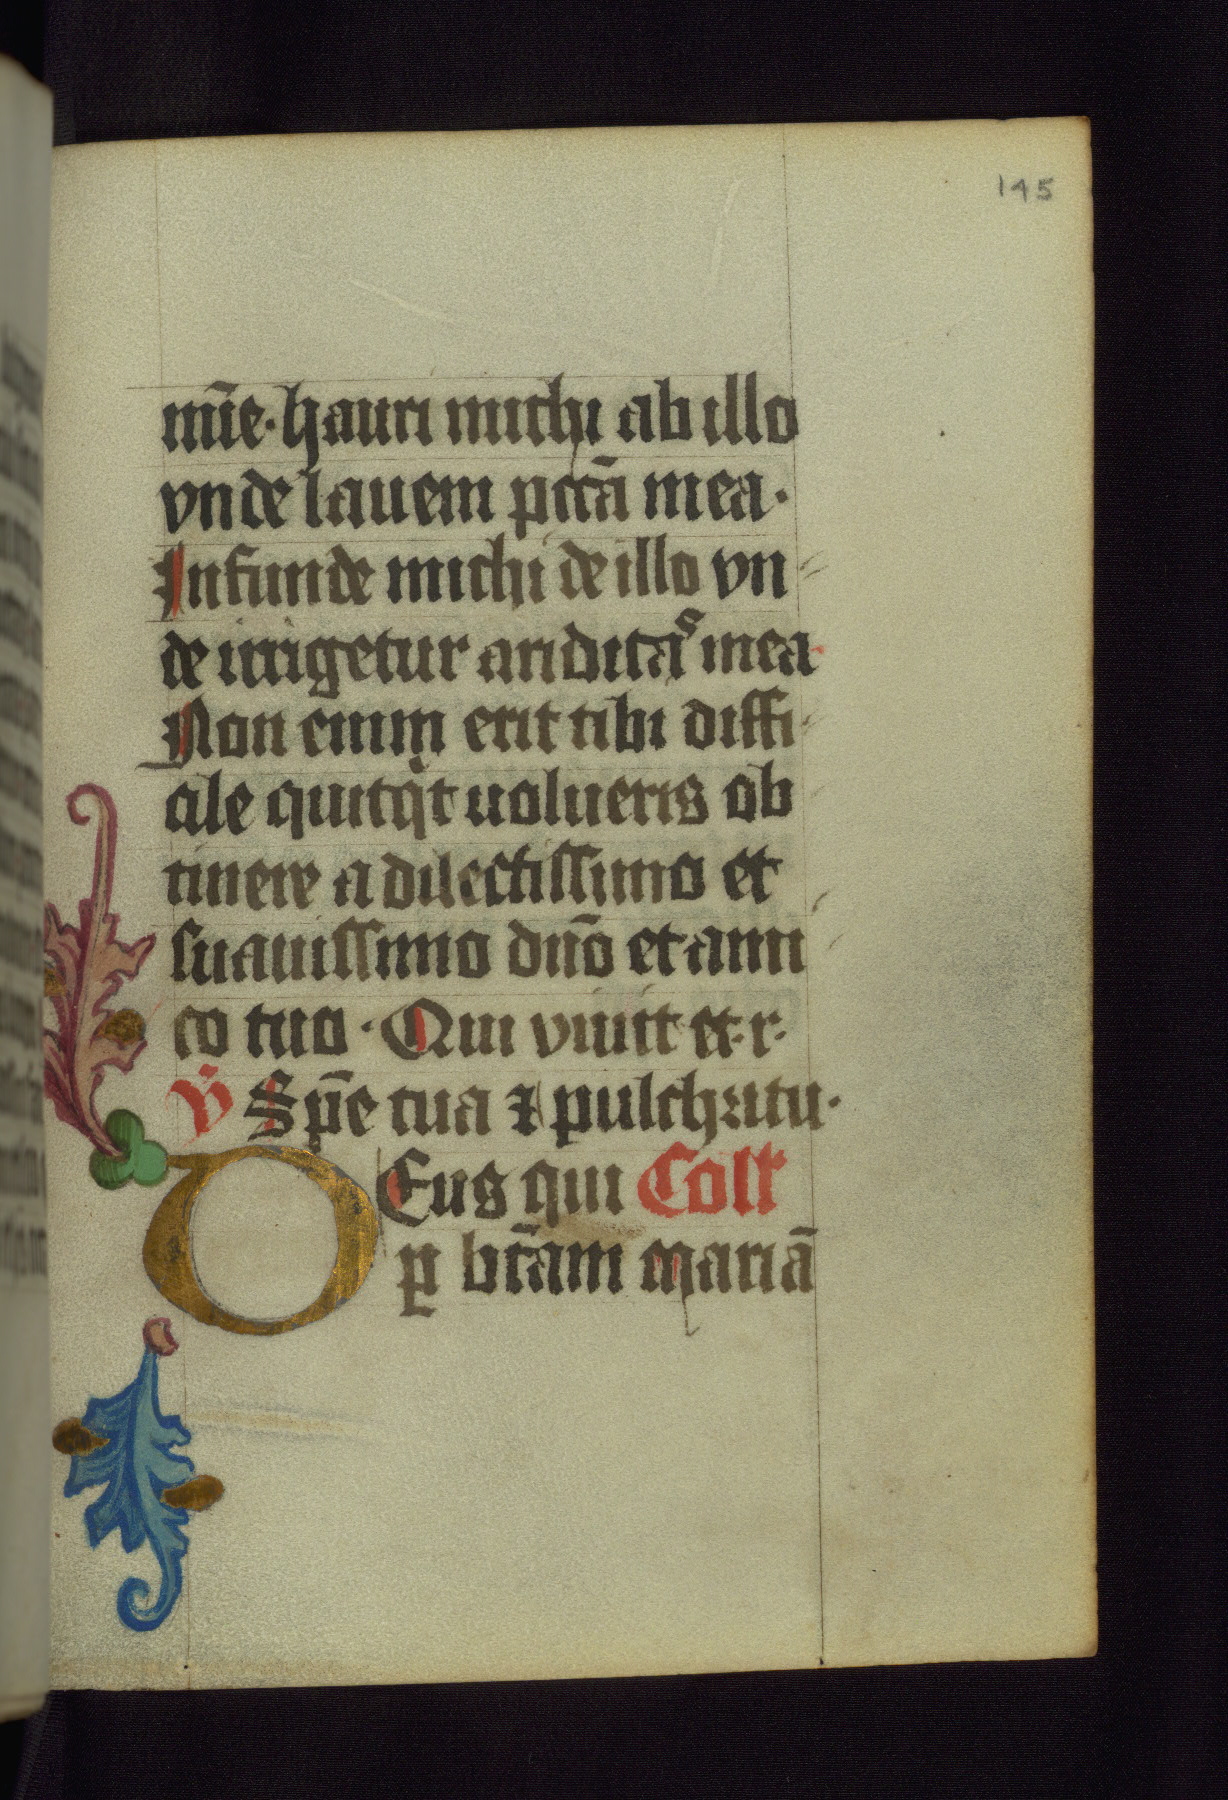 145
mīe· hauri michi ab illo
vnde lauem pctā mea·
Infunde michi de illo vn
de irrigetur aridita⁹ mea·
Non enim erit tibi diffi
cile quitqͥt uolueris ob
tinere a dilectissimo et
suauissimo dn̄o et ami
co tuo· Qui viuit et· r·
v̄ Spē tua ⁊ pulchritu·
DEus qui Colt
ꝑ bt̄am mariā